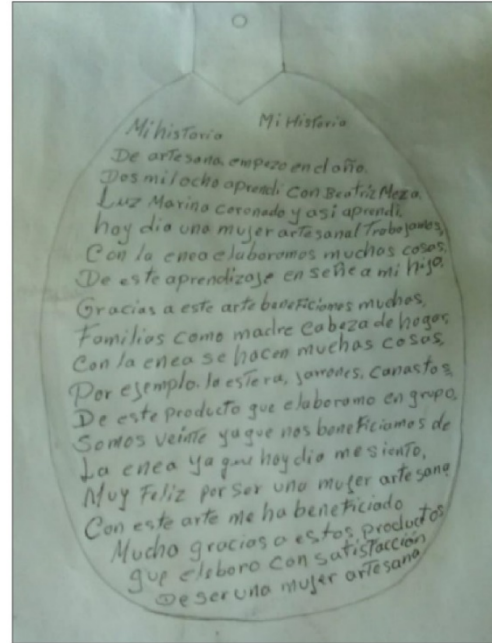 Mi historia Mi Historia
De artesana. empezo en el año.
Dos mil ocho aprendi Con Beatriz Meza.
Luz Marina coronado y asi aprendi.
hoy dia una mujer artesanal Trabajamos,
Con la enea elaboramos muchas cosas.
De este aprendizaje enseñe a mi hijo.
Gracias a este arte beneficiamos muchas,
Familias como madre cabeza de hogar,
Con la enea se hacen muchas cosas,
Por ejemplo. la estera, jarrones, canastos,
De este producto que elaboramo en grupo,
Somos veinte ya que nos beneficiamos de
La enea ya que hoy dia me siento,
Muy Feliz por ser una mujer artesana
Con este arte me ha beneficiado
Mucho gracias a estos productos
que elaboro con satisfacción
De ser una mujer artesana